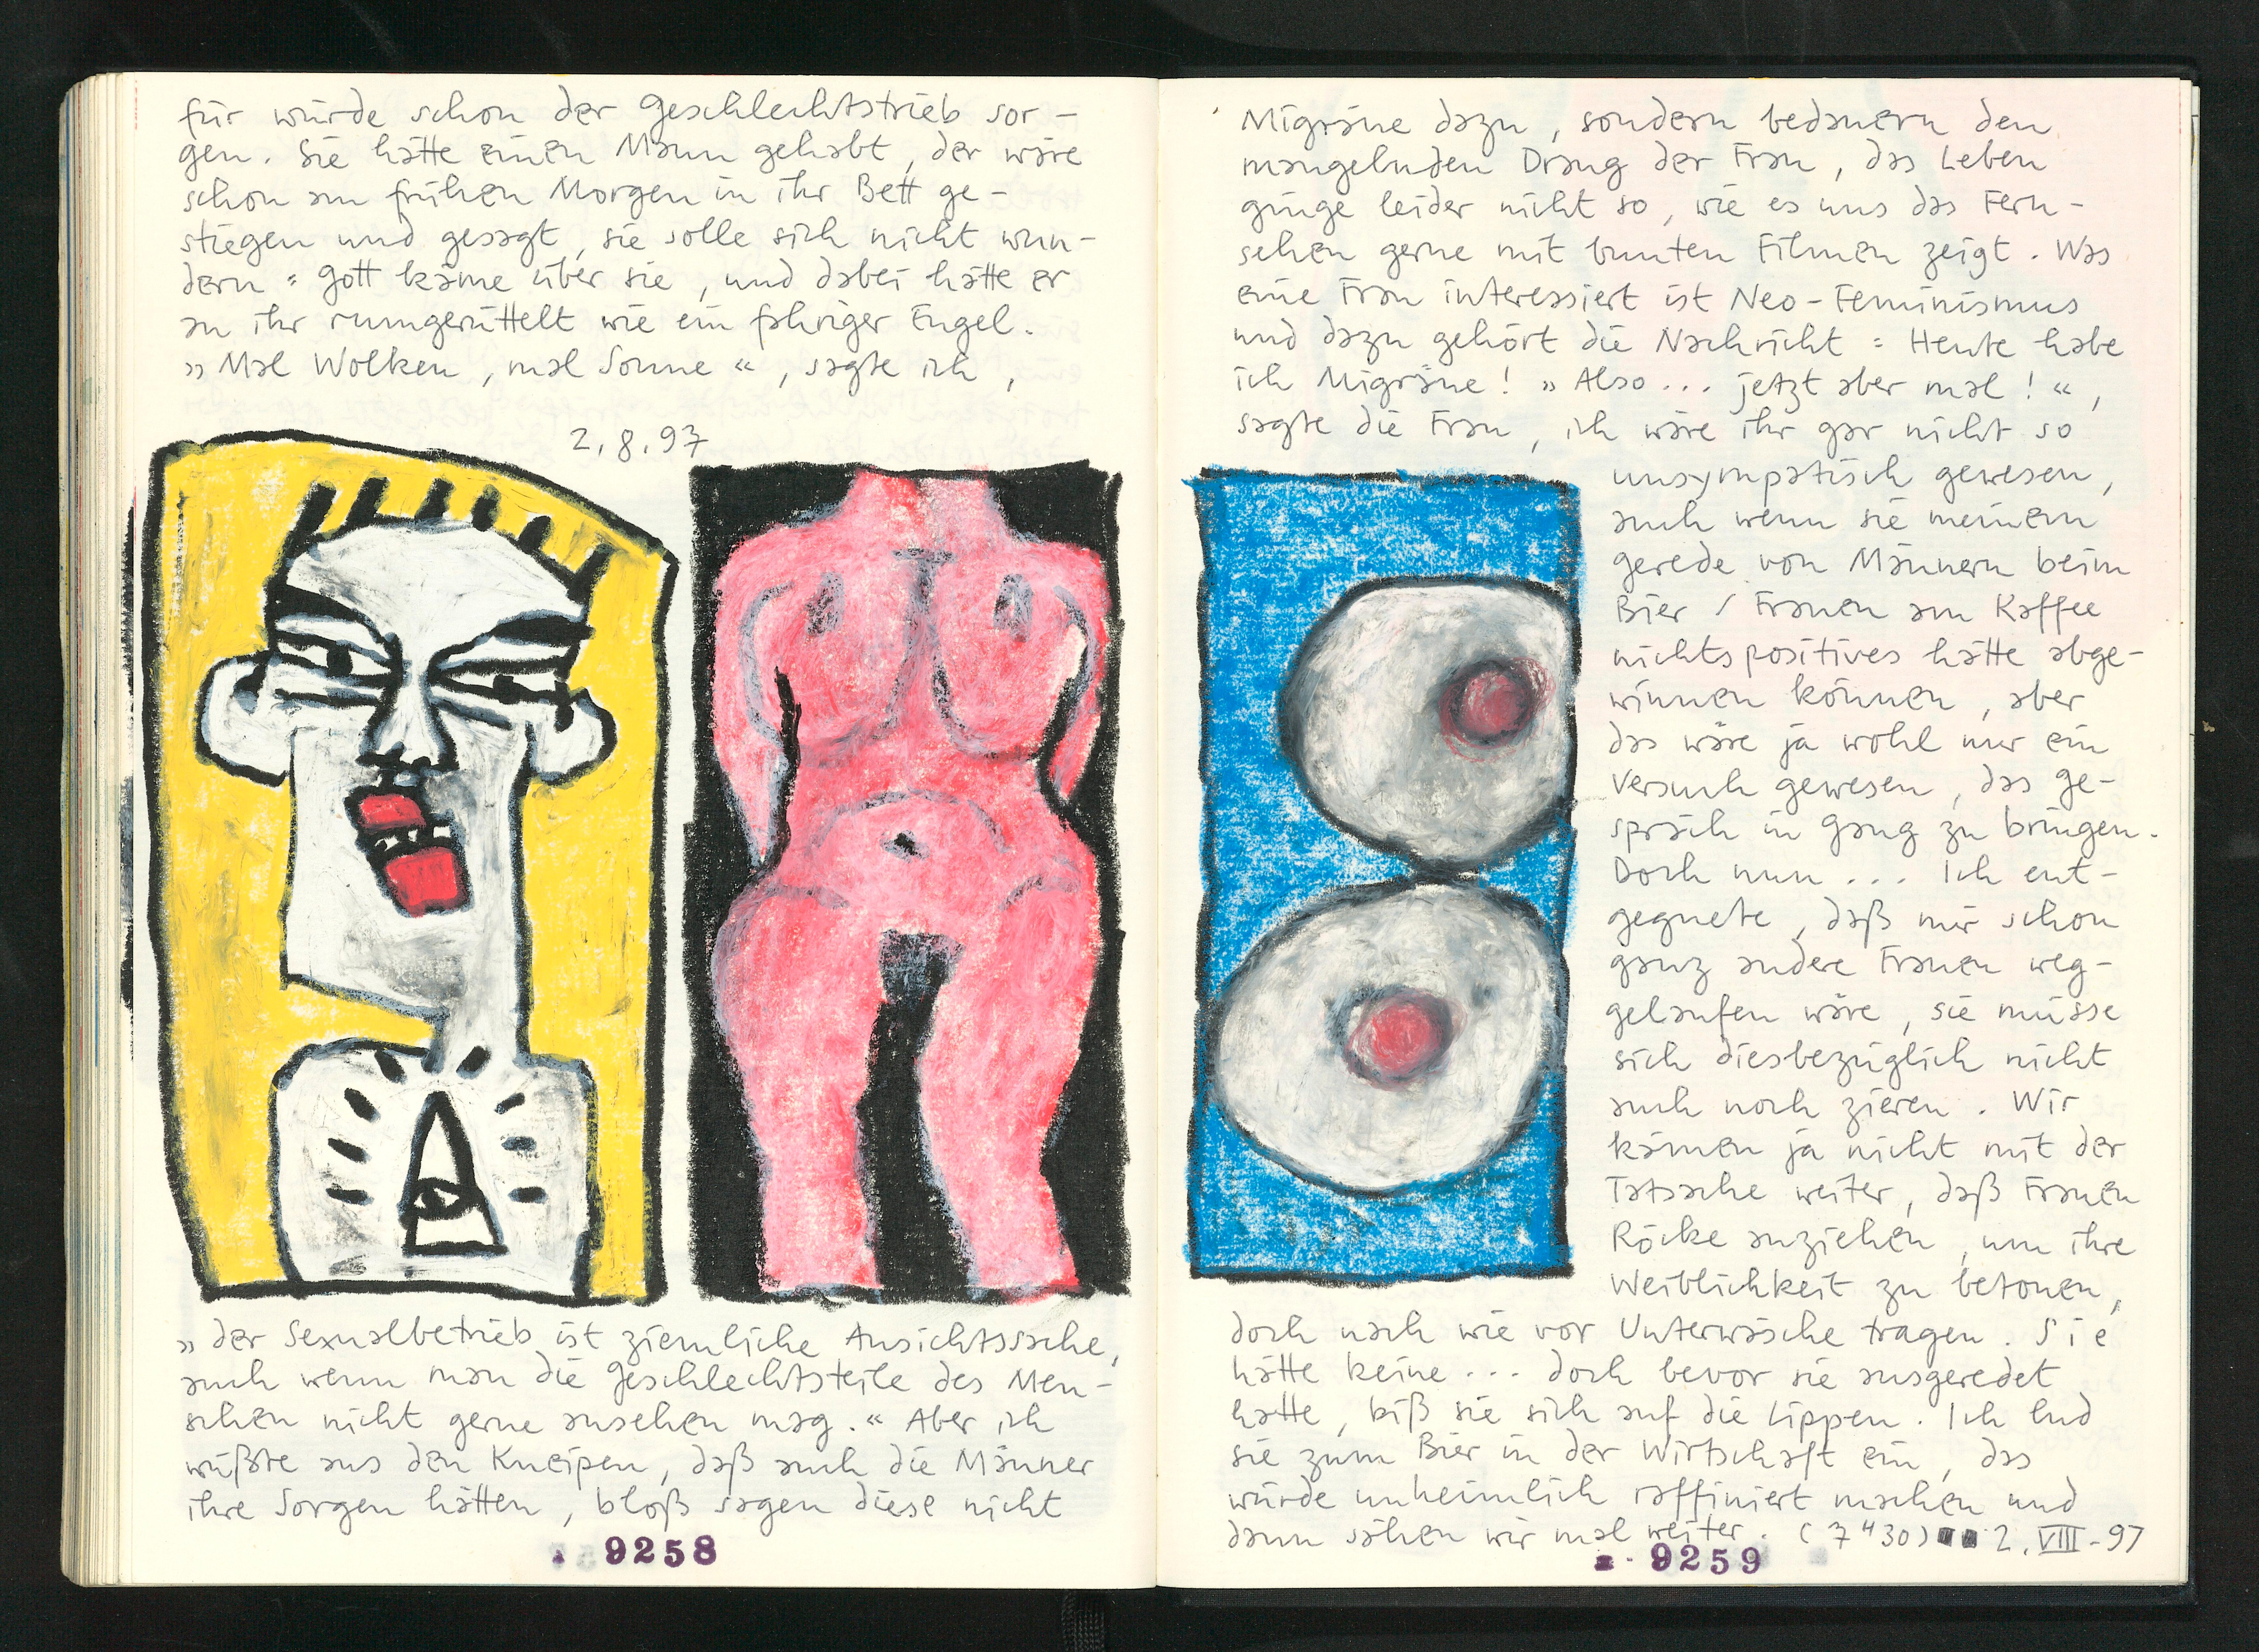 für würde schon der Geschlechtstrieb sor-
gen. Sie hätte einen Mann gehabt, der wäre
schon am frühen Morgen in ihr Bett ge-
stiegen und gesagt, sie solle sich nicht wun-
dern: Gott käme über sie, und dabei hätte er
an ihr rumgerüttelt wie ein fahriger Engel.
„Mal Wolken, mal Sonne“, sagte ich,
2.8.97
„der Sexualbetrieb ist ziemliche Ansichtssache,
auch wenn man die Geschlechtsteile des Men-
schen nicht gerne ansehen mag.“ Aber ich
wüßte aus den Kneipen, daß auch die Männer
ihre Sorgen hätten, bloß sagen diese nicht
9258
Migräne dazu, sondern bedauern den
mangelnden Drang der Frau, das Leben
ginge leider nicht so, wie es uns das Fern-
sehen gerne mit bunten Filmen zeigt. Was
eine Frau interessiert ist Neo-Feminismus
und dazu gehört die Nachricht: Heute habe
ich Migräne! „Also... jetzt aber mal!“,
sagte die Frau, ich wäre ihr gar nicht so
unsympatisch gewesen,
auch wenn sie meinem
gerede von Männern beim
Bier / Frauen am Kaffee
nichts positives hätte abge-
winnen können, aber
das wäre ja wohl nur ein
Versuch gewesen, das Ge-
spräch in Gang zu bringen.
Doch nun... Ich ent-
gegnete, daß mir schon
ganz andere Frauen weg-
gelaufen wäre, sie müsse
sich diesbezüglich nicht
auch noch zieren. Wir
kämen ja nicht mit der
Tatsache weiter, daß Frauen
Röcke anziehen, um ihre
Weiblichkeit zu betonen,
doch nach wie vor Unterwäsche tragen. Sie
hätte keine... doch bevor sie ausgeredet
hatte, biß sie sich auf die Lippen. Ich lud
sie zum Bier in der Wirtschaft ein, das
würde unheimlich raffiniert machen und
dann sähen wir mal weiter. (7"30) 2. VIII-97
9259